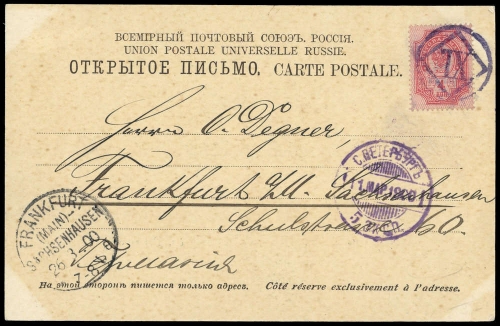 ВСЕМІРНЫЙ ПОЧТОВЫЙ СОЮЗЪ. РОССІЯ.
UNION POSTALE UNIVERSELLE RUSSIE.
ОТКРЫТОЕ ПИСЬМО. CARTE POSTALE.
Herrn O. Degner,
С.ПЕТЕРБУРГЪ
Frankfurt a/M. Sachsenhausen
Schulstrasse 60.
Германія
FRANKFURT
(MAIN)
SACHSENHAUSEN
26.3.00
На этой сторонѣ пишется только адресъ. Côté réserve exclusivement à l'adresse.